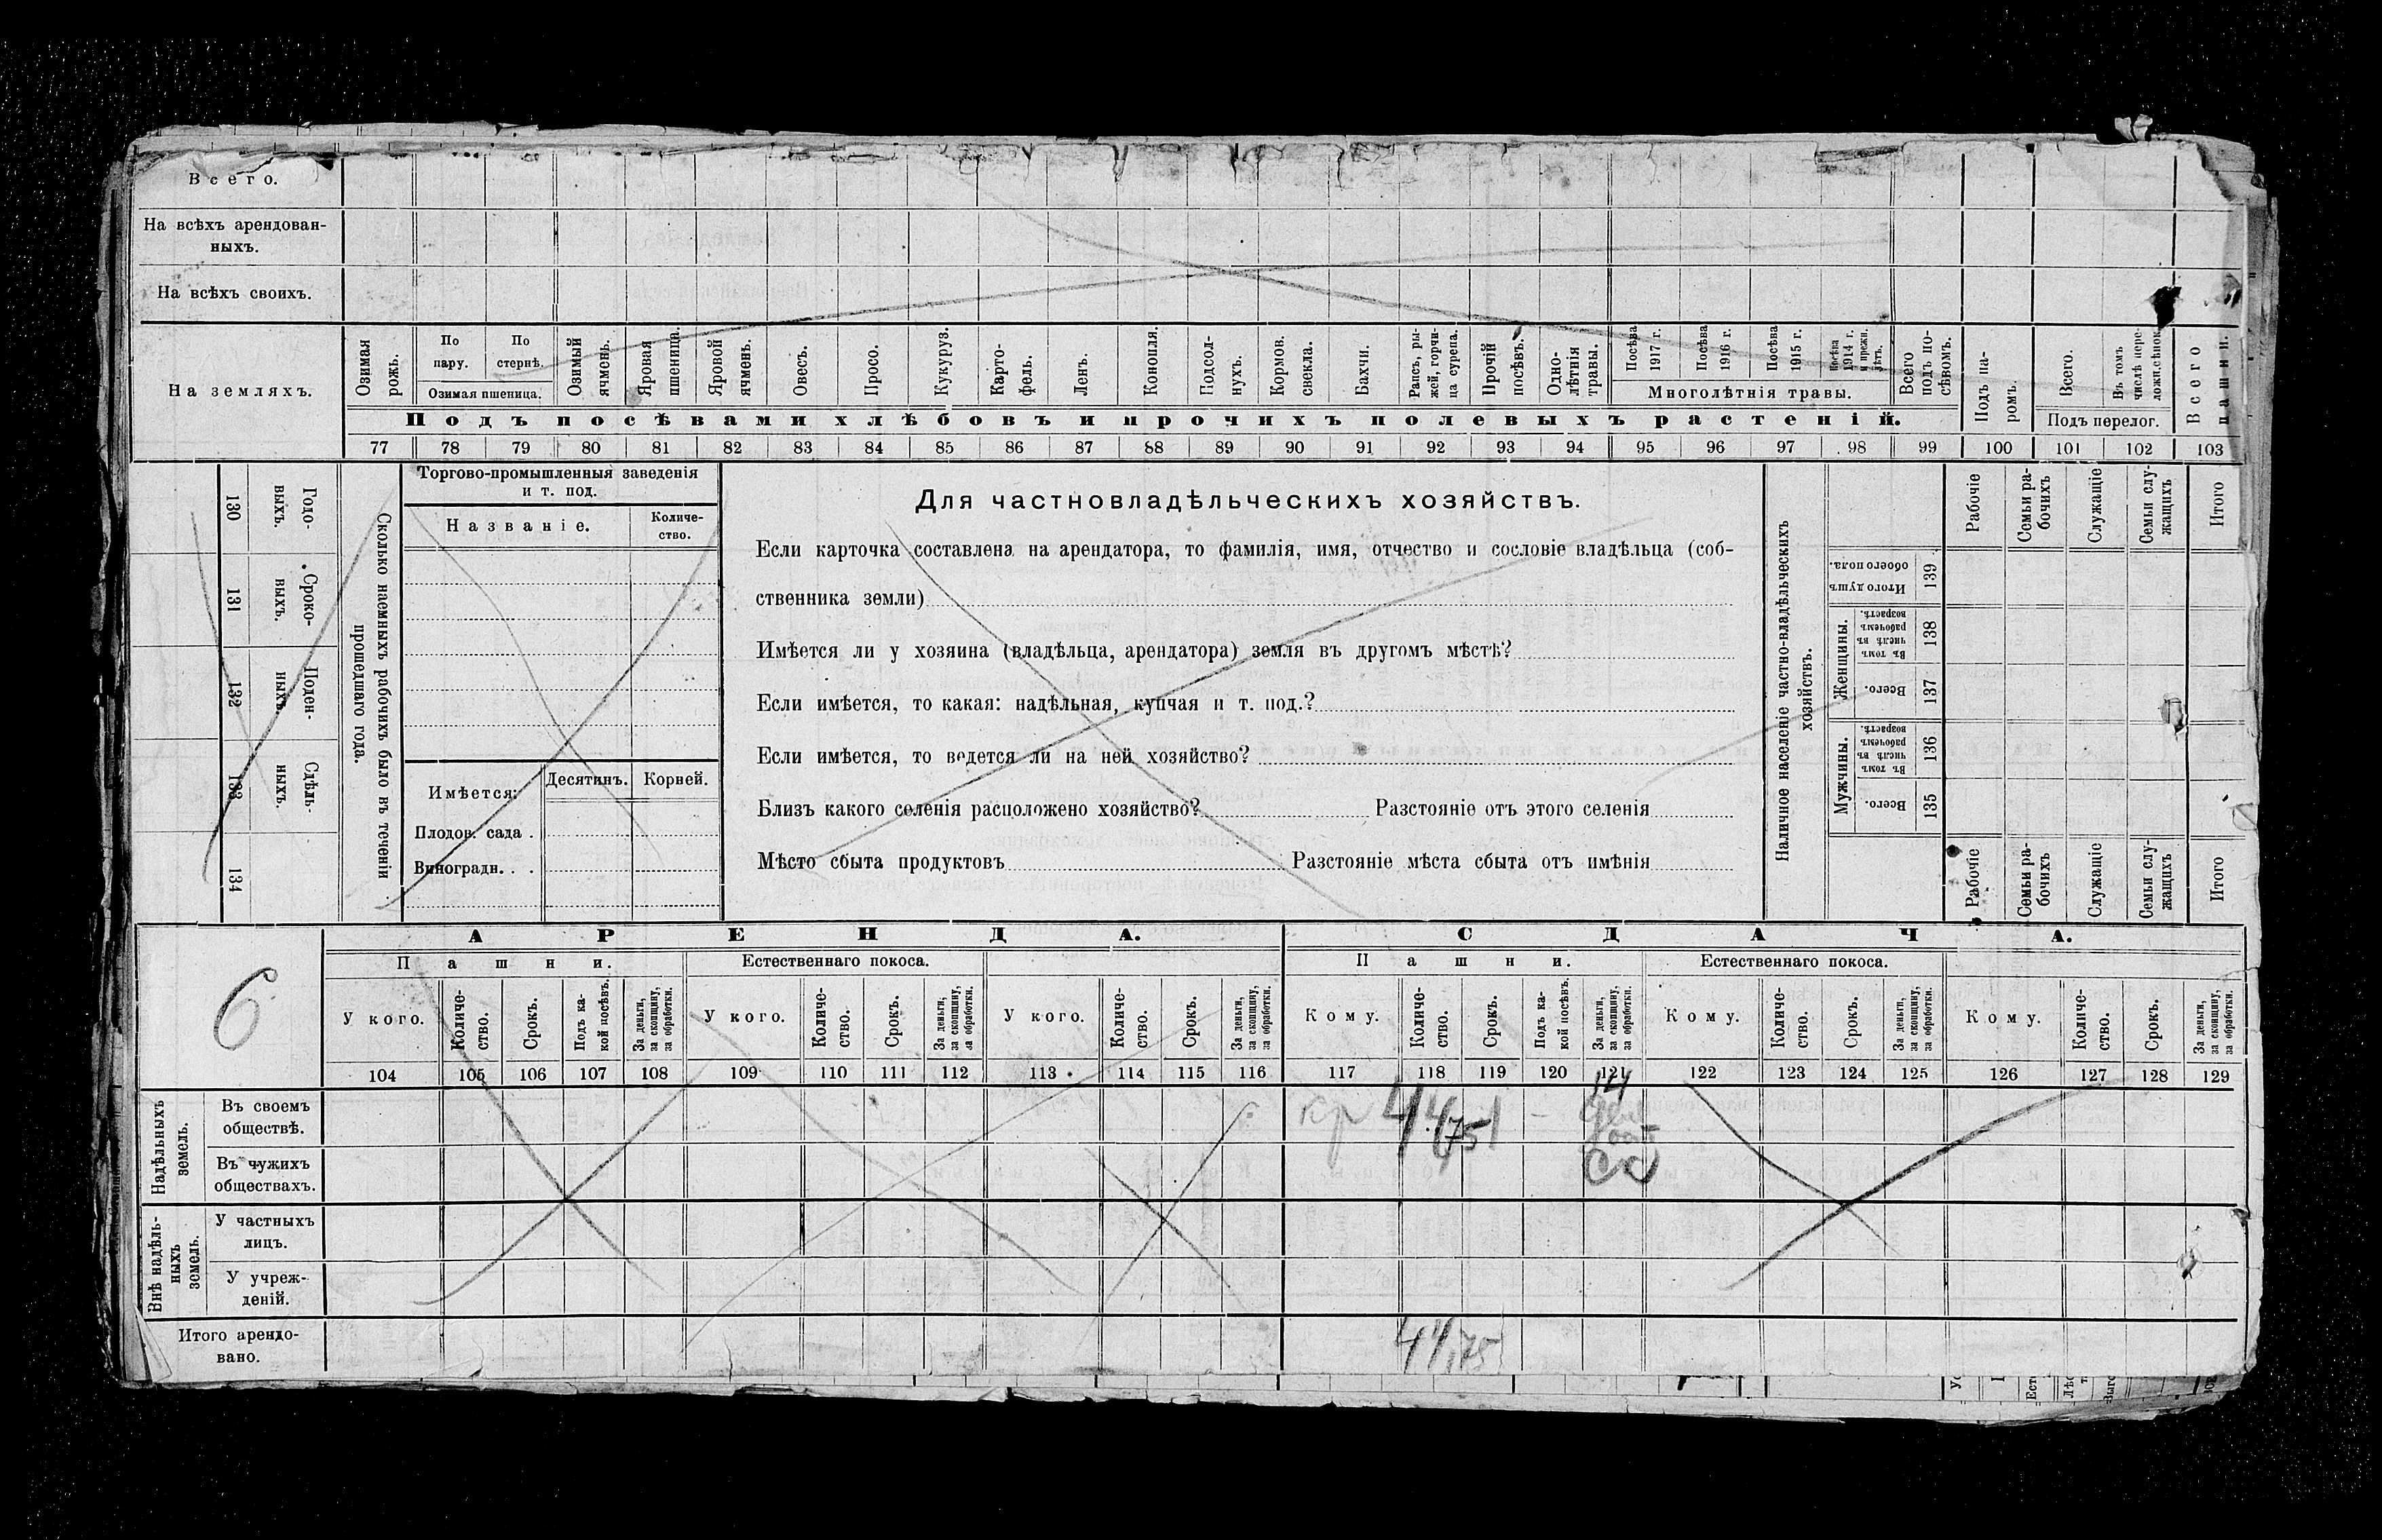 Всего.
На всѣхъ арендован-
ныхъ.
На всѣхъ своихъ.
На земляхъ.
Озимая рожь.
По пару.
По стернѣ.
Озимая пшеница.
Озимый ячмень.
Яровая пшеница.
Яровой ячмень.
Овесъ.
Просо.
Кукуруз.
Карто-
фель.
Ленъ.
Конопля.
Подсол-
нухъ.
Кормов. свекла.
Бахчи.
Рапсъ, ры-
жей, горчи-
ца сурепа.
Прочій посѣвъ.
Одно-
лѣтнія травы.
Посѣва 1917 г.
Посѣва 1916 г.
Посѣва 1915 г.
Посѣва 1914 г. и прежн. лѣтъ.
Многолѣтнія травы.
Всего подъ по-
сѣвомъ.
Подъ па-
ромъ.
Всего.
Въ томъ числѣ пере-
Подъ перелог.
Всего пашни.
Подъ посѣвами хлѣбовъ и прочихъ полевыхъ растеній.
77 78 79 80 81 82 83 84 85 86 87 88 89 90 91 92 93 94 95 96 97 98 99 100 101 102 103
130 Годо-
выхъ.
131 Сроко-
выхъ.
132 Поден-
ныхъ.
133 Сдѣль-
ныхъ.
134
Сколько наемныхъ рабочихъ было въ теченіи
прошедшаго года.
Торгово-промышленныя заведенія
и т. под.
Названіе.
Количе-
ство.
Имѣется:
Десятинъ.
Корней.
Плодов. сада .
Виноградн. . .
Для частновладѣльческихъ хозяйствъ.
Если карточка составлена на арендатора, то фамилія, имя, отчество и сословіе владѣльца (соб-
ственника земли)
Имѣется ли у хозяина (владѣльца, арендатора) земля въ другомъ мѣстѣ?
Если имѣется, то какая: надѣльная, купчая и т. под.?
Если имѣется, то ведется ли на ней хозяйство?
Близъ какого селенія расположено хозяйство? Разстояніе отъ этого селенія
Мѣсто сбыта продуктовъ Разстояніе мѣста сбыта отъ имѣнія
Наличное населеніе частно-владѣльческихъ
хозяйствъ.
Рабочіе
Семьи ра-
бочихъ
Служащіе
Семьи слу-
жащихъ
Итого
Итого душъ
обоего пола.
139
Женщины.
Въ томъ числѣ въ рабочемъ возрастѣ.
138
Всего.
137
Мужчины.
Въ томъ числѣ въ рабочемъ возрастѣ.
136
Всего.
135
Рабочіе
Семьи ра-
бочихъ
Служащіе
Семьи слу-
жащихъ
Итого
6
АРЕНДА.
СДАЧА.
Пашни.
Естественнаго покоса.
Пашни.
Естественнаго покоса.
У кого.
Количе-
ство.
Срокъ.
Подъ ка-
кой посѣвъ.
За деньги, за скопщину, за обработки.
У кого.
Количе-
ство.
Срокъ.
За деньги, за скопщину, за обработки.
У кого.
Количе-
ство.
Срокъ.
За деньги, за скопщину, за обработки.
Кому.
Количе-
ство.
Срокъ.
Подъ ка-
кой посѣвъ.
За деньги, за скопщину, за обработки.
Кому.
Количе-
ство.
Срокъ.
За деньги, за скопщину, за обработки.
Кому.
Количе-
ство.
Срокъ.
За деньги, за скопщину, за обработки.
104 105 106 107 108 109 110 111 112 113 114 115 116 117 118 119 120 121 122 123 124 125 126 127 128 129
Надѣльныхъ
земель.
Въ своемъ
обществѣ.
кр 44,75 1 - 14
Въ чужихъ
обществахъ.
Внѣ надѣль-
ныхъ
земель.
У частныхъ
лицъ.
У учреж-
деній.
Итого арендо-
вано.
44,75